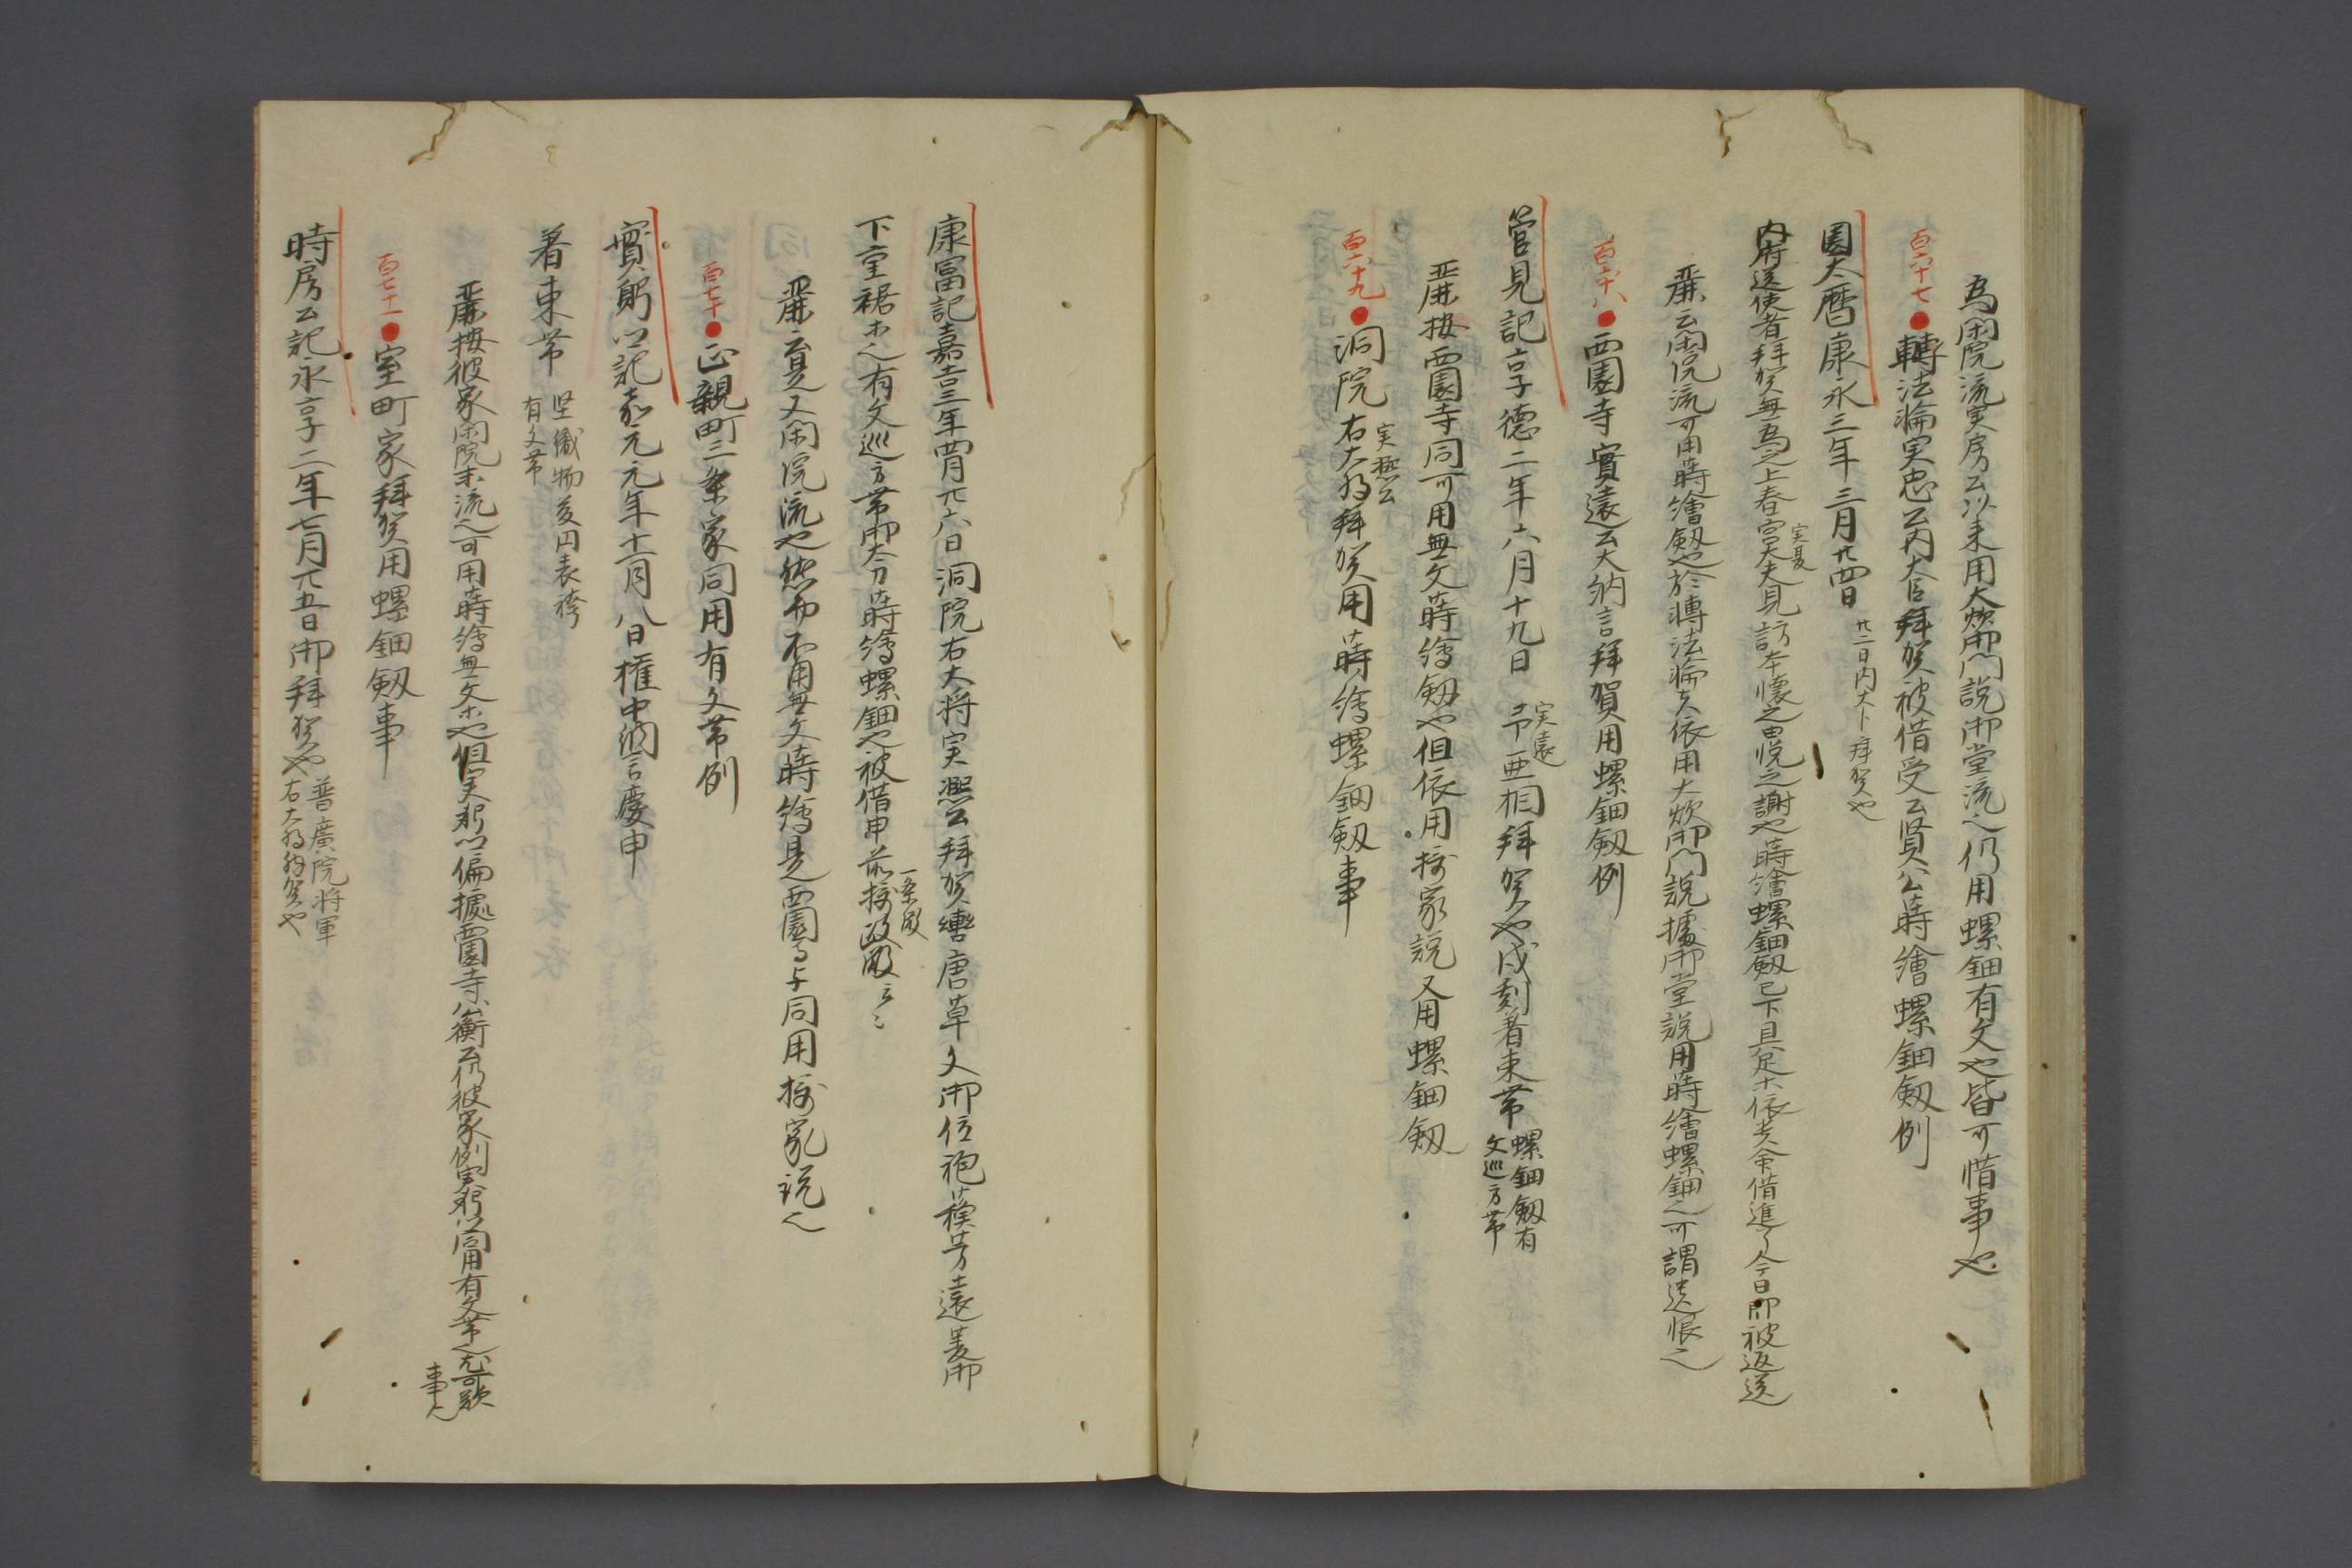 為閑院流実房公以来用大炊御門説御堂流之仍用螺鈿有文也皆可惜事也
百六十七●轉法輪実忠公内大臣拝賀被借受公賢公蒔繪螺鈿釼例
園太暦康永三年三月廿四日 廿二日内大卜拝賀也
内府送使者拝賀無為之上春宮大夫実夏見訪本懐之由悦之謝也蒔繪螺鈿釼已下具足木依夫余借進了今日即被返送
廉云閑院流可用蒔繪釼也於轉法輪夫依用大炊御門説據御堂説用蒔繪螺鈿之可謂遺恨之
百六十八●西園寺實遠公大納言拝賀用螺鈿釼例
管見記享徳二年六月十九日 予実遠亜相拝賀也戌刻着束帯 螺鈿釼有
文巡方帯
廉按西園寺同可用無文蒔繪釼也但依用摂家説又用螺鈿釼
百六十九●洞院実熈公右大将拝賀用蒔繪螺鈿釼事
康富記嘉吉三年四月廿六日洞院右大将実熈公拝賀轡唐草文御位袍䕶芳遠菱御
下重裾木之有文巡方帯御太刀蒔繪螺鈿也被借申前摂政殿一条殿云々
廉云夏又閑院流也然而不用無文蒔繪是西園寺与同用摂家説之
百七十●正親町三条家同用有文帯例
實躬卿記嘉元元年十二月八日権中納言慶申
着束帯 堅織物菱円表袴
有文帯
廉按彼家閑院末流之可用蒔繪無文木也但実躬卿偏據西園寺公衡公仍彼家例実躬卿同用有文帯之尤可歎
事之
百七十一●室町家拝賀用螺鈿釼事
時房公記永享二年七月廿五日御拝賀也 普廣院将軍
右大将拝賀也